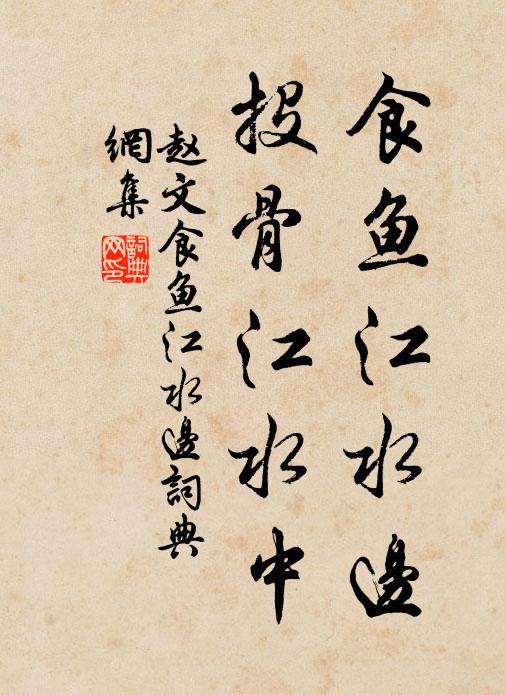 食鱼江水邊
投骨江水中
赵文食鱼江水邊詞典
網集
詞典
网印